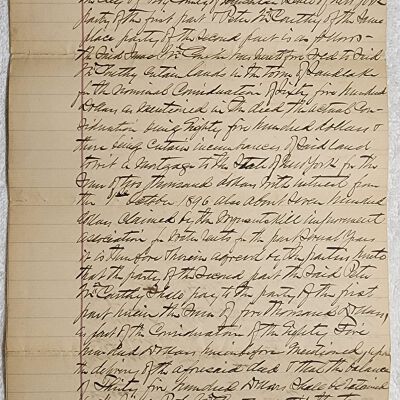 the City of Troy County of Rensselaer State of New York
party of the first part & Peter McCarthy of the same
place party of the second part is as follows
the said James McCarthy has
McCarthy Certain lands in the town of Sand Lake
for the Nominal Consideration of Sixty five hundred
Dollars as mentioned in the deed the actual Con-
sideration being Eighty five hundred dollars &
there being Certain incumbrances of said land
to wit a Mortgage to the State of New York for the
Sum of two thousand dollars with interest from
the 1st October 1896 also about seven hundred
dollars Claimed by the Wynants Kill improvement
association for Water Rents for the past several years
it is therefore herein agreed by the parties hereto
that the party of the second part the said Peter
McCarthy Shall pay to the party of the first
part herein the Sum of five thousand Dollars
as part of the Consideration of the Eighty Five
hundred Dollars hereinbefore Mentioned upon
the delivery of the aforesaid deed & that the balance
of Thirty five hundred Dollars Shall be retained
by the